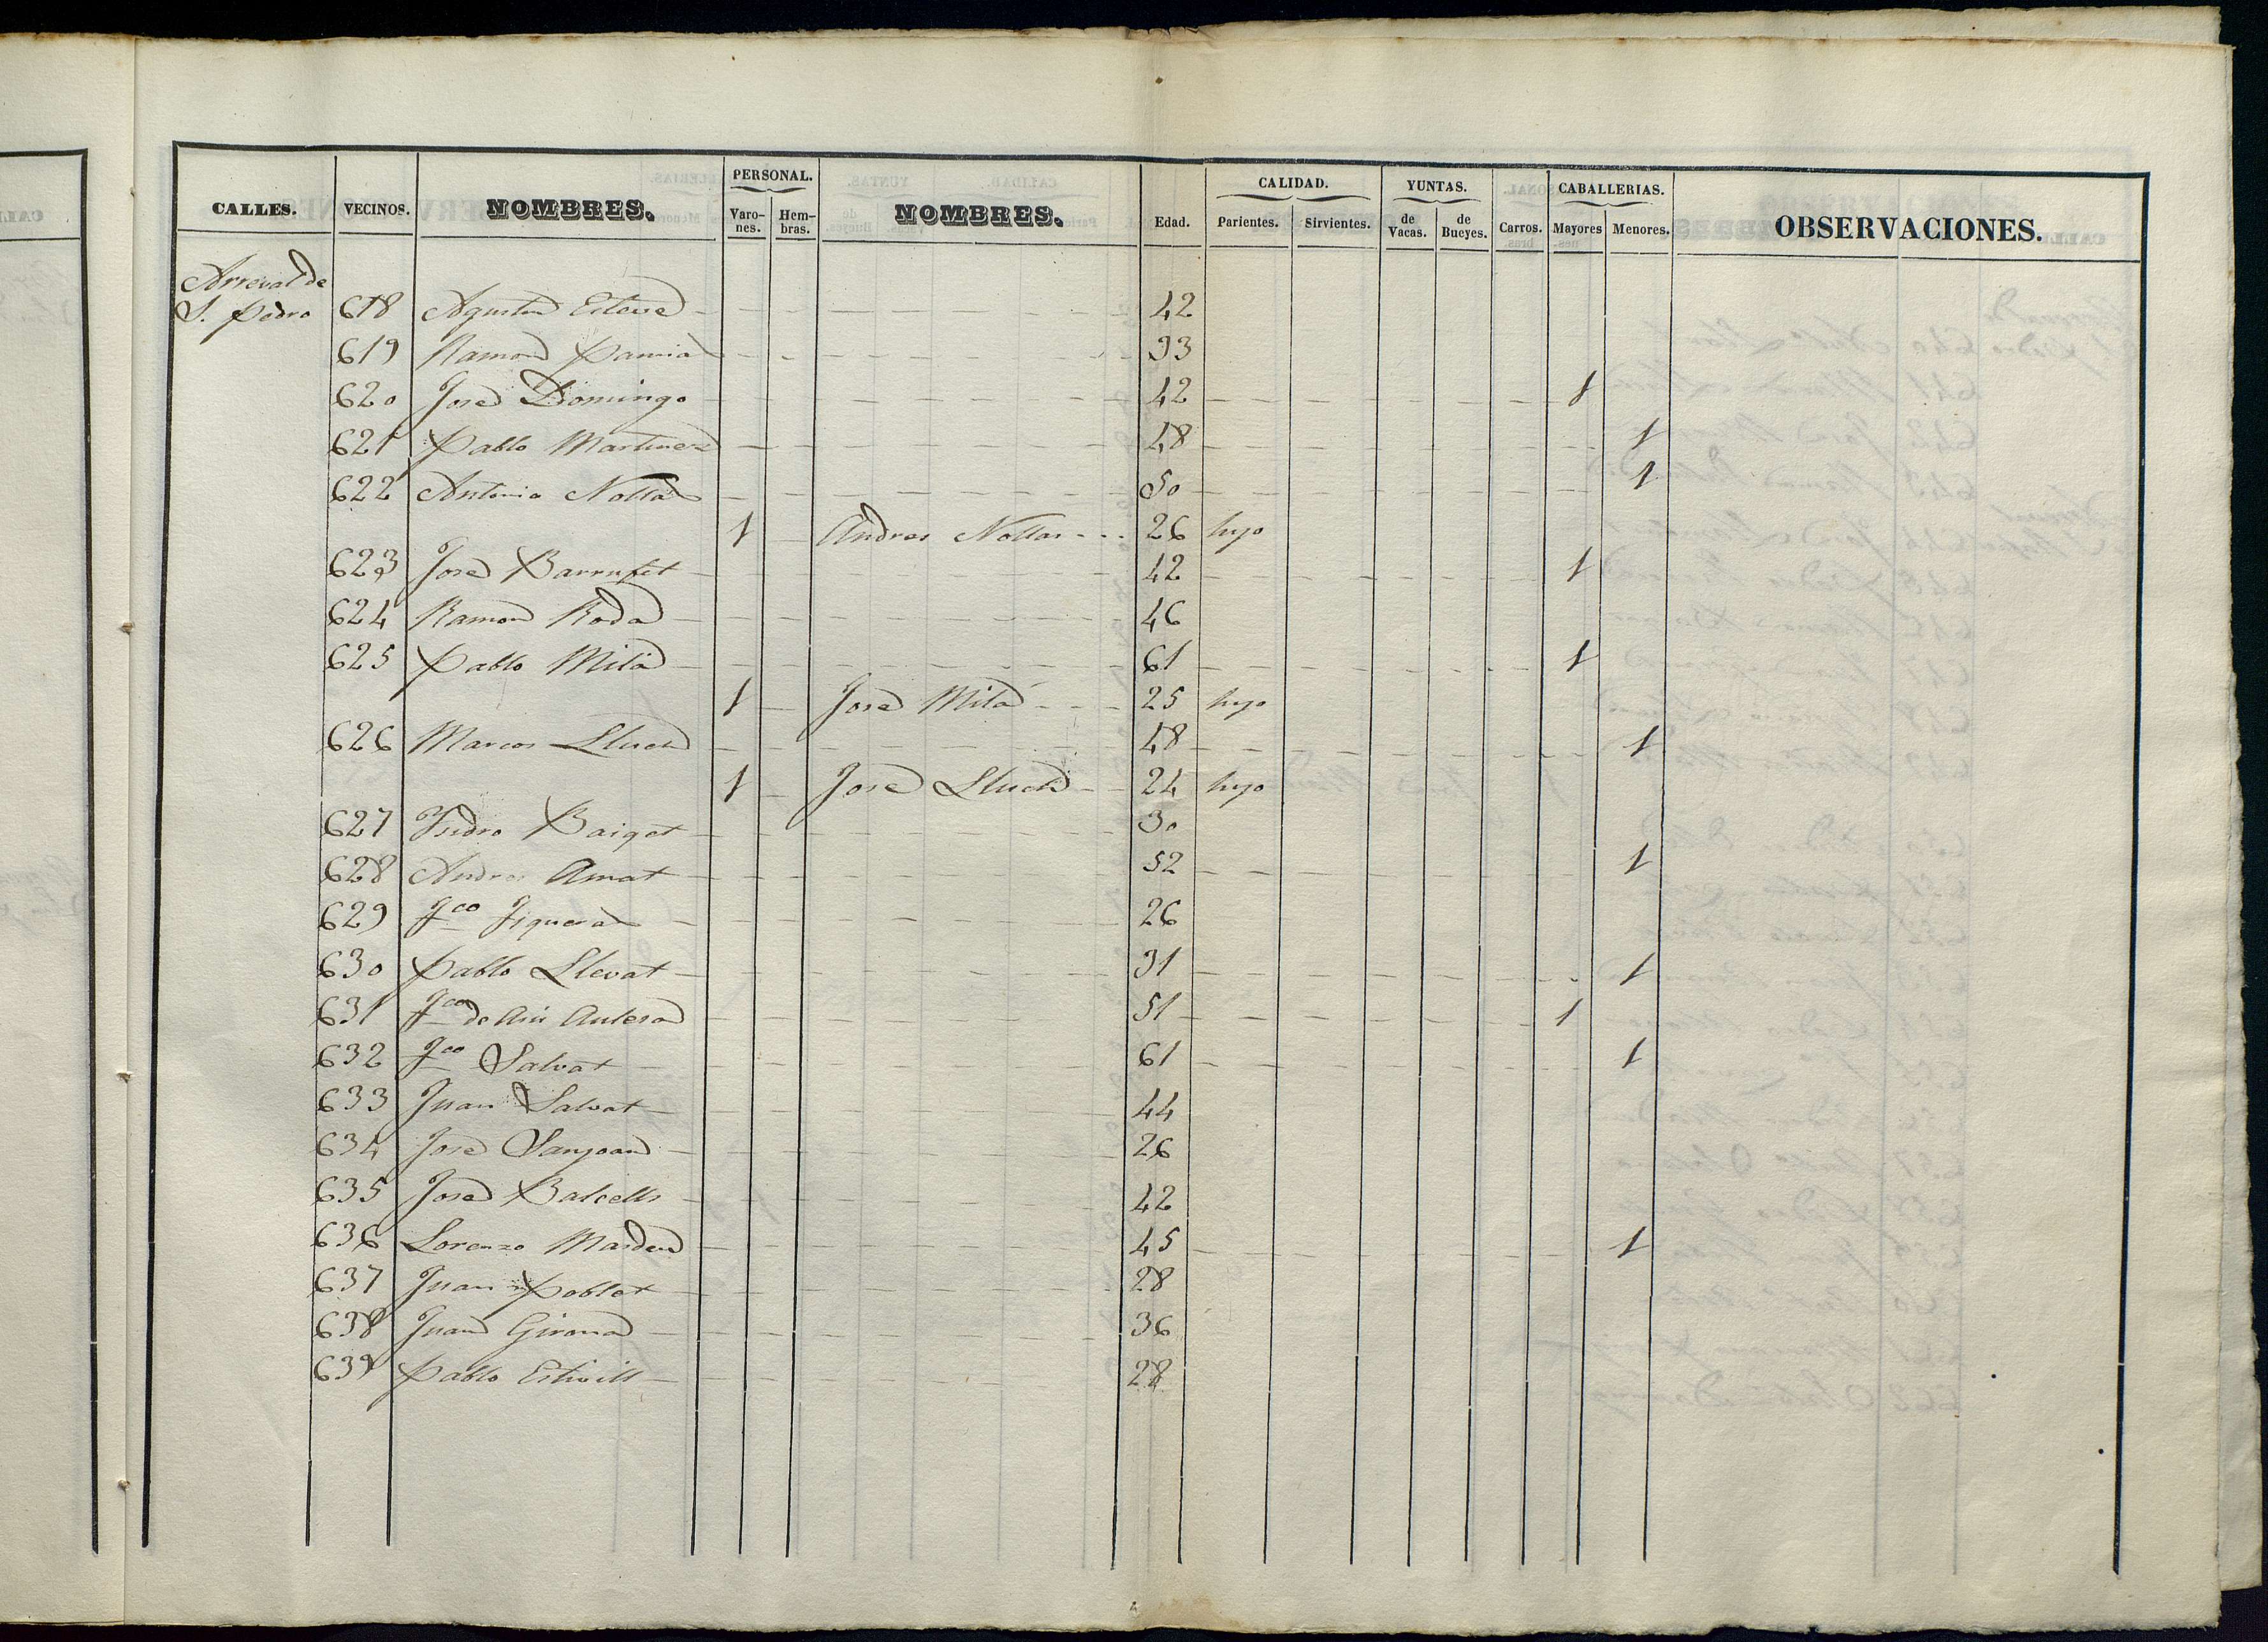 CALLES. VECINOS. NOMBRES. PERSONAL. Varo-nes. Hem-bras. NOMBRES. Edad. CALIDAD. Parientes. Sirvientes. YUNTAS. de Vacas. de Bueyes. Carros. CABALLERIAS. Mayores Menores. OBSERVACIONES.
Arreval de
S. Pedro 618 Agustin Esteve 42
619 Ramon Pamias 33
620 José Domingo 42 1
621 Pablo Martinez 48 1
622 Antonio Nollas 50 1
1 Andres Nollas 26 hijo
623 José Barrufet 42 1
624 Ramon Roda 46
625 Pablo Milá 61 1
1 José Milá 25 hijo
626 Marcos Lluch 48 1
1 José Lluch 24 hijo
627 Isidro Baiget 30
628 Andres Amat 52 1
629 Fco Figueras 26
630 Pablo Llevat 31 1
631 Fco de Asis 51 1
632 Fco Salvat 61 1
633 Juan Salvat 44
634 José Sanjoan 26
635 José Balcells 42
636 Lorenzo 45 1
637 Juan Poblet 28
638 Juan Girona 36
639 Pablo Estivill 28